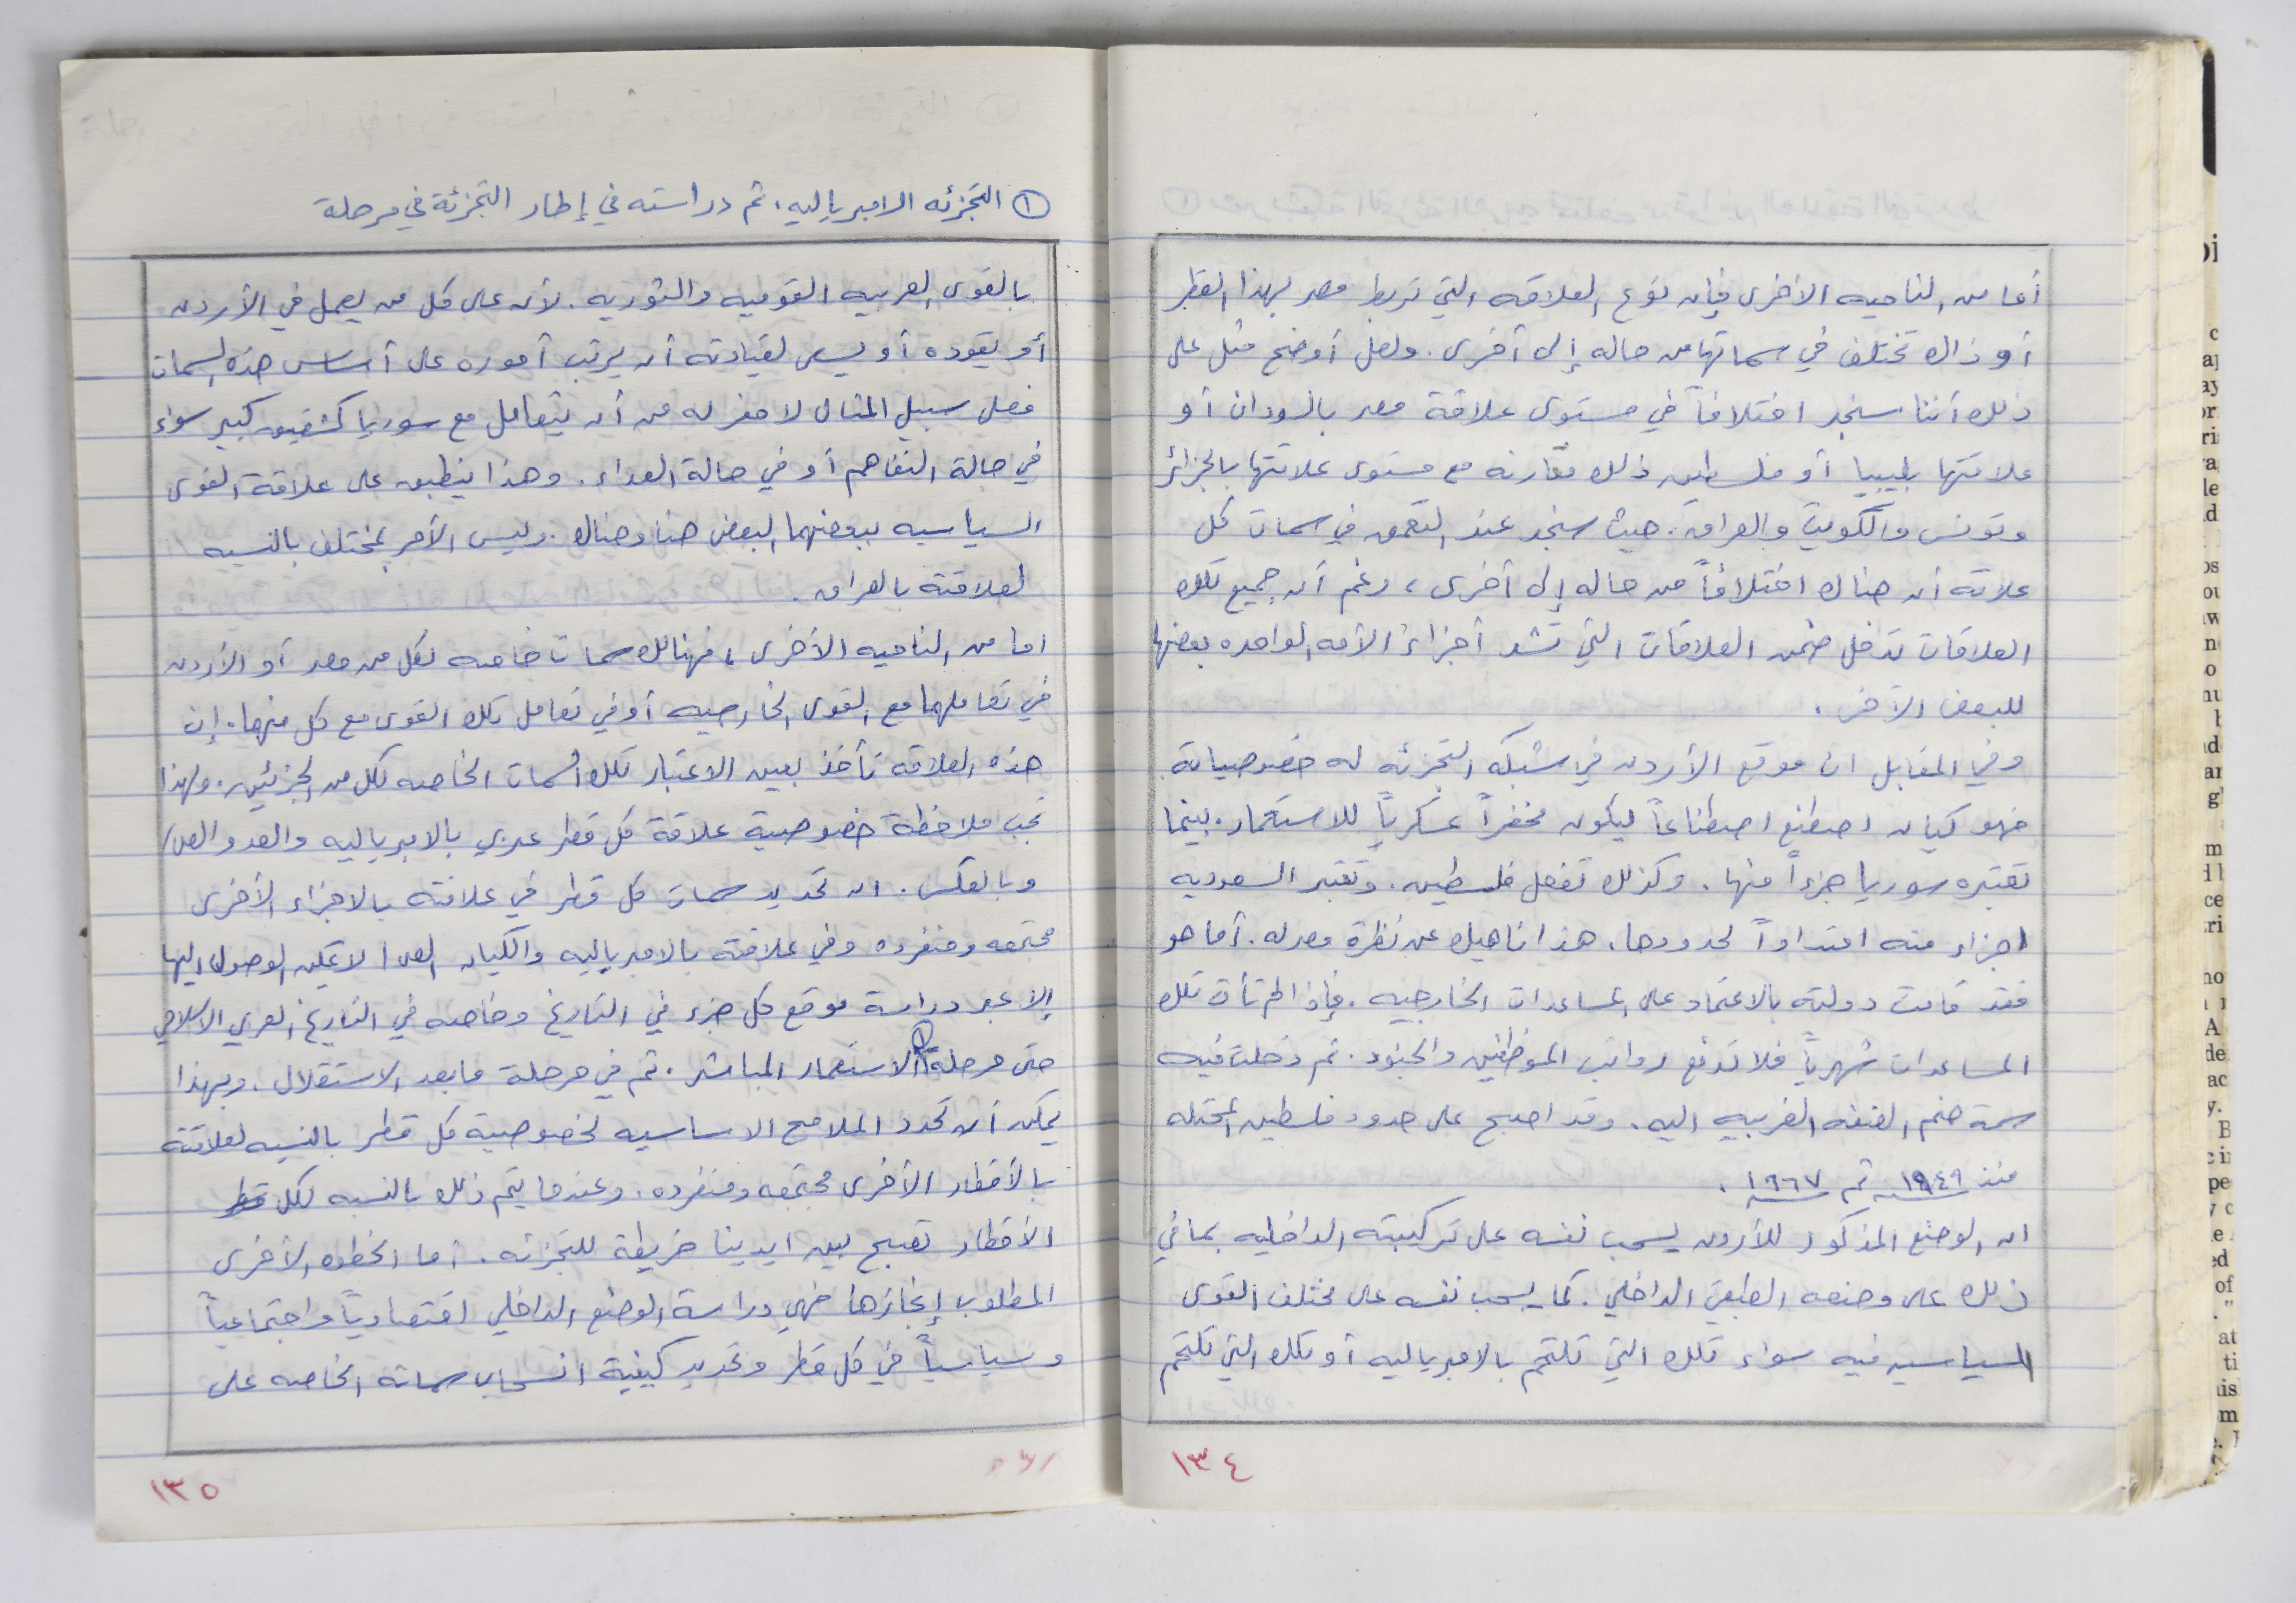 أما من الناحيه الأخرى فإن نوع العلاقه التي تربط مصر بهذا القطر
أو ذاك تختلف في سماتها من حاله إلى أخرى. ولعل أوضح مثل على
ذلك أننا سنجد اختلافاً في مستوى علاقة مصر بالسودان أو
علاقتها بليبيا أو فلسطين وذلك مقارنه مع مستوى علاقتها بالجزائر
وتونس والكويت والعراق. حيث سنجد عند التعمق في سمات كل
علاقة أن هناك اختلافاً من حاله إلى أخرى، رغم أن جميع تلك
العلاقات تدخل ضمن العلاقات التي تشد أجزاء الأمه الواحده بعضها
للبعض الآخر.
وفي المقابل ان موقع الأردن في شبكه التجزئه له خصوصياته.
فهو كيان اصطنع اصطناعاً ليكون مخفراً عسكرياً للاستعمار. بينما
تعتبره سوريا جزءاً منها. وكذلك تفعل فلسطين. وتعتبر السعوديه
اجزاء منه امتداداً لحدودها. هذا ناهيك عن نظرة مصر له. أما هو
فقد قامت دولته بالاعتماد على المساعدات الخارجيه. فإذا لم تأت تلك
المساعدات شهرياً فلا تدفع رواتب الموظفين والجنود. ثم دخلت فيه
سمة ضم الضفه الغربيه اليه. وقد اصبح على حدود فلسطين المحتله
منذ ١٩٤٩ ثم ١٩٦٧.
ان الوضع المذكور للأردن يسحب نفسه على تركيبته الداخليه بما في
ذلك على وضعه الطبقي الداخلي. كما يسحب نفسه على مختلف القوى
السياسيه فيه سواء تلك التي تلتحم بالامبرياليه أو تلك التي تلتحم
١٣٤
① التجزئه الامبرياليه. ثم دراسته في إطار التجزئة في مرحلة
بالقوى العربيه القوميه والثوريه. لأن على كل من يعمل في الأردن
أو يقوده أو يسعى لقيادته أن يرتب أموره على أساس هذه السمات
فعلى سبيل المثال لا مفر له من أن يتعامل مع سوريا كشقيق كبير سواء
في حالة التفاهم أو في حالة العداء. وهذا ينطبق على علاقة القوى
السياسيه ببعضهما البعض هنا وهناك. وليس الأمر بمختلف بالنسبه
لعلاقته بالعراق.
اما من الناحيه الأخرى، فهنالك سمات خاصه لكل من مصر أو الأردن
في تعاملهما مع القوى الخارجيه أو في تعامل تلك القوى مع كل منهما. إن
هذه العلاقه تأخذ بعين الاعتبار تلك السمات الخاصه لكل من الجزئين. ولهذا
يجب ملاحظة خصوصية علاقة كل قطر عربي بالامبرياليه والعدو الص/
وبالعكس. ان تحديد سمات كل قطر في علاقته بالاجزاء الأخرى
مجتمعه ومنفرده وفي علاقته بالامبرياليه والكيان الص/ لا يمكن الوصول اليها
إلا عبر دراسة موقع كل جزء في التاريخ وخاصه في التاريخ العربي الاسلامي
حتى مرحلة ① الاستعمار المباشر. ثم في مرحلة ما بعد الاستقلال. وبهذا
يمكن أن تحدد الملامح الاساسيه لخصوصية كل قطر بالنسبه لعلاقته
بالأقطار الأخرى مجتمعه ومنفرده. وعندما يتم ذلك بالنسبه لكل
الأقطار تصبح بين ايدينا خريطة للتجزئه. أما الخطوه الأخرى
المطلوب إنجازها فهي دراسة الوضع الداخلي اقتصادياً واجتماعياً
وسياسياً في كل قطر وتحديد كيفية انسحاب سماته الخاصه على
١٣٥